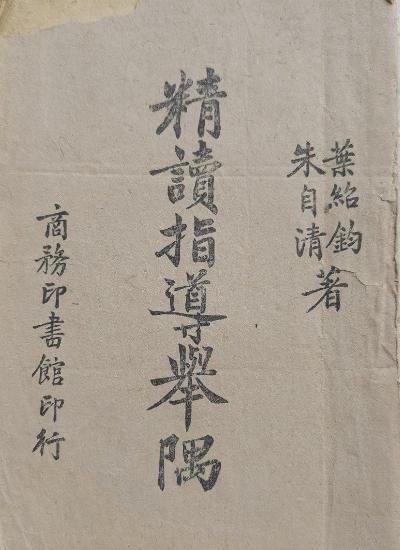 葉紹鈞
朱自清
著
精讀指導舉隅
商務印書館印行